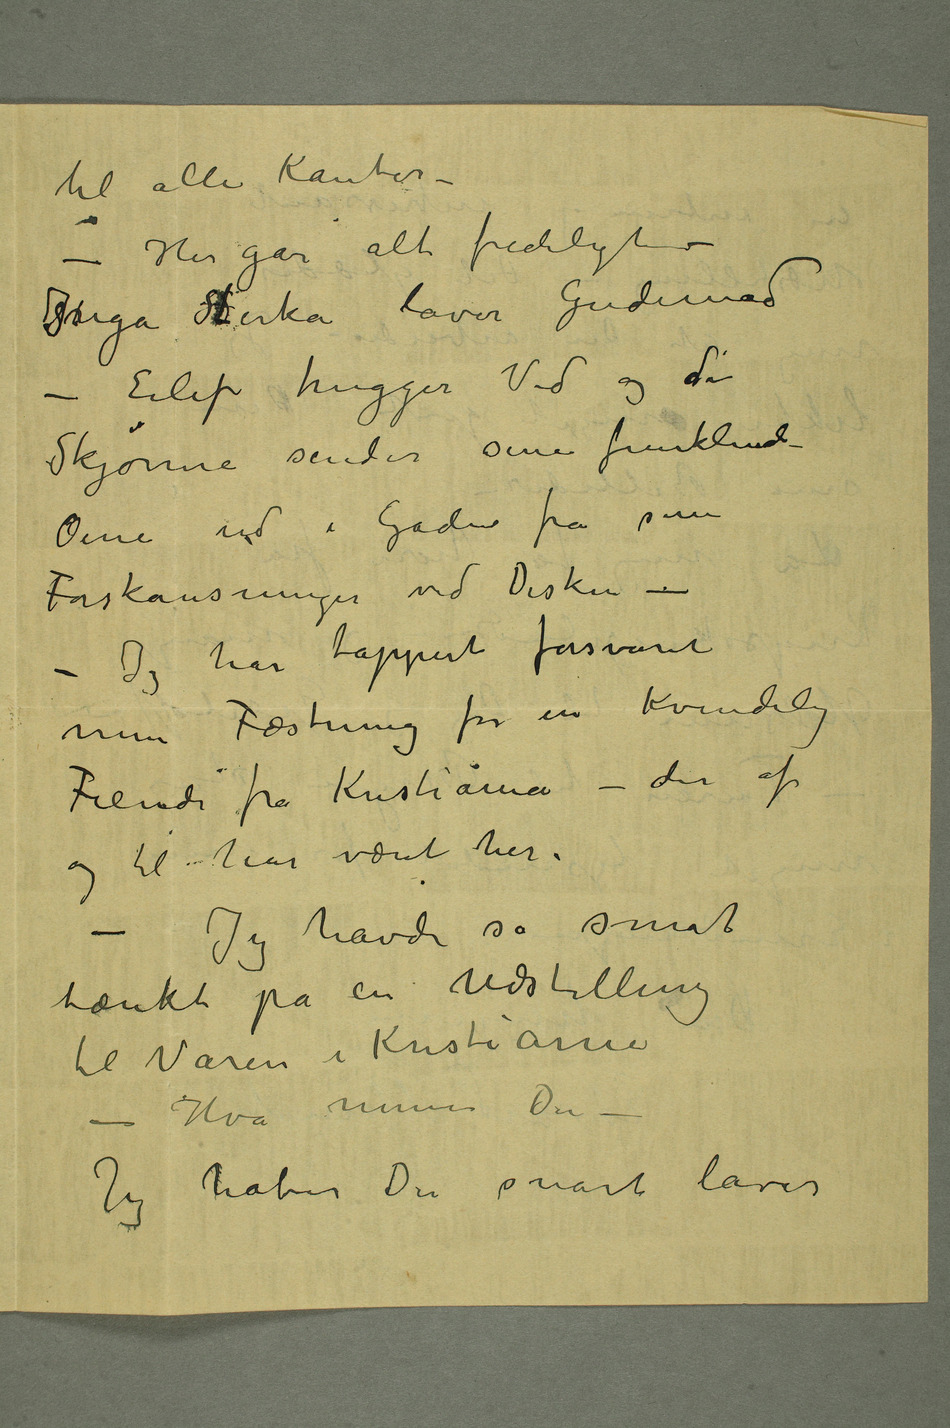 til alle Kanter –
– Her går alt fredeligt –
Inga Stærka laver Gudemad
– Eilef hugger Ved og de
Skjønne sender sine funklende
Øine ud i Gaden fra sine
Forskansninger ved Disken –
– Jeg har tappert forsvaret
min Fæstning for en Kvindelig
Fiende fra Kristiania – der af
og til har været her.
– Jeg havde så småt
tænkt på en Udstilling
til Våren i Kristiania
– Hva mener Du –
Jeg håber Du snart laver